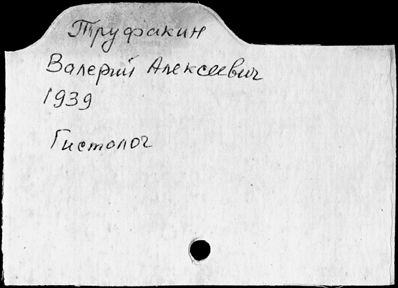 Труфакин
Валерий Алексеевич
1939
Гистолог